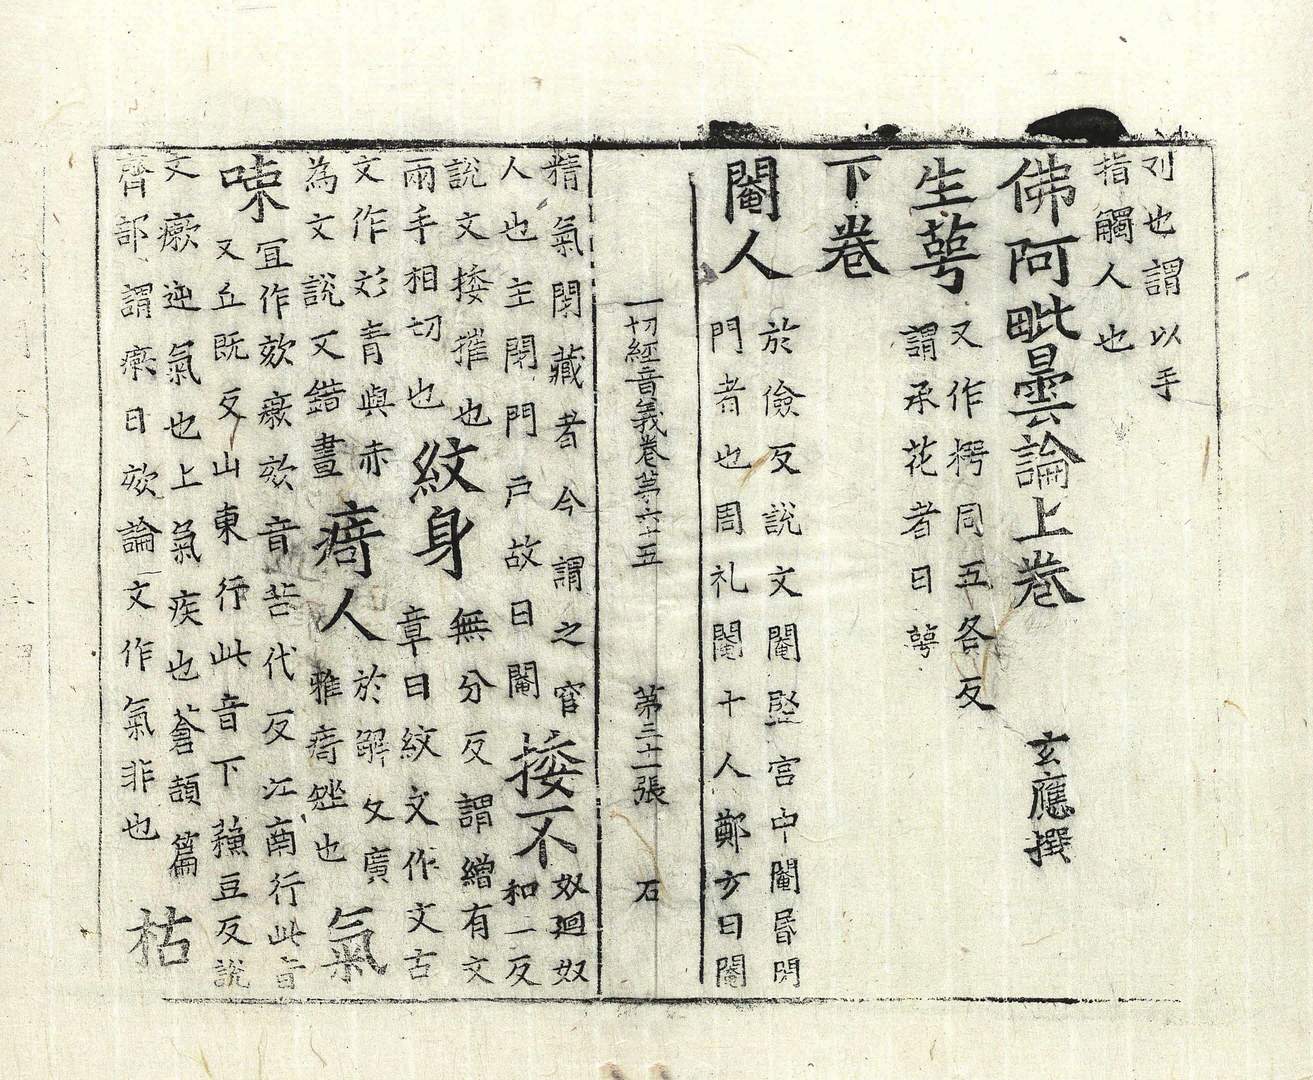 刾也謂以手
指觸人也
佛阿毗曇論上卷 玄應撰
生蕚 又作㮙同五各反
謂承花者曰蕚
下卷
閹人 於儉反說文閹竪宮中閹昬閇
門者也周礼閹十人鄭方曰閹
一切經音義卷苐六十五 第三十一張 石
精氣閇藏者今謂之宦
人也主閇門戶故曰閹
捼不 奴迴奴
和二反
說文捼摧也
兩手相切也
紋身 無分反謂繒有文
章曰紋文作文古
文作彣青與赤
為文說文錯畫
痯人 於解反廣
雅痯矬也
氣
㖒 又作欬瘶欬音苦代反江南行此音
又丘既反山東行此音下蘓豆反說
文瘶逆氣也上氣疾也蒼頡篇
齊部謂瘶曰欬論文作氣非也
枯